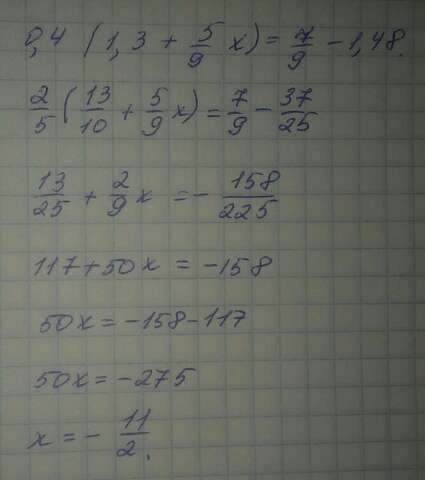 0,4 (1,3 + 5/9 x) = 7/9 - 1,48.
2/5 (13/10 + 5/9 x) = 7/9 - 37/25
13/25 + 2/9 x = - 158/225
117 + 50x = -158
50x = -158 - 117
50x = -275
x = - 11/2.